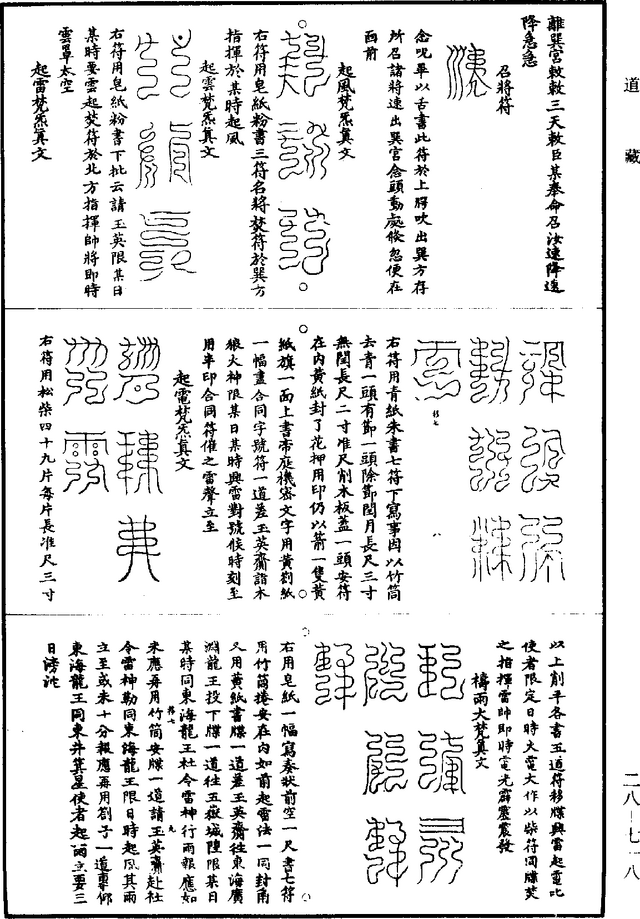 道藏
離巽宮敕敕三天敕臣某奉命召汝速降速
降急急
召將符
念呪畢以舌書此符於上腭吹出巽方存
所召諸將速出巽宮念頭動處倐忽便在
面前
起風梵炁真文
右符用皂紙粉書三符名將焚符於巽方
指揮於某時起風
起雲梵炁真文
右符用皂紙粉書下批云請玉英限某日
某時要雲起焚符於北方指揮帥將即時
雲罩太空
起雷梵炁真文
右符用青紙朱書七符下寫事因以竹筒
去青一頭有節一頭除節閏月長尺三寸
無閏長尺二寸准尺削木板蓋一頭安符
在内黄紙封了花押用印仍以箭一隻黄
紙旗一面上書帝庭機密文字用黄劄紙
一幅畫合同字號符一道差玉英齎詣木
狼火神限某日某時興雷對號候時刻至
用半印合同符催之雷聲立至
起電梵炁真文
右符用松柴四十九片每片長准尺三寸
以上削平各書五道符移牒興雷起電比
使者限定日時大電大作以柴符同牒焚
之指揮雷帥即時電光霹靂震發
檮雨大梵真文
右用皂紙一幅寫奏狀前空一尺書七符
用竹筒捲安在内如前起雷法一同封角
又用黄紙書牒一道差玉英齎往東海廣
淵龍王投下牒一道往五嶽城隍限某日
某時同東海龍王社令雷神行雨報應如
未應再用竹筒安牒一道請玉英齎赴社
令雷神勒同東海龍王限日時起風其雨
立至或未十分報應再用劄子一道專仰
東海龍王同東井箕星使者起雨立要三
日滂沱
二八—七一八